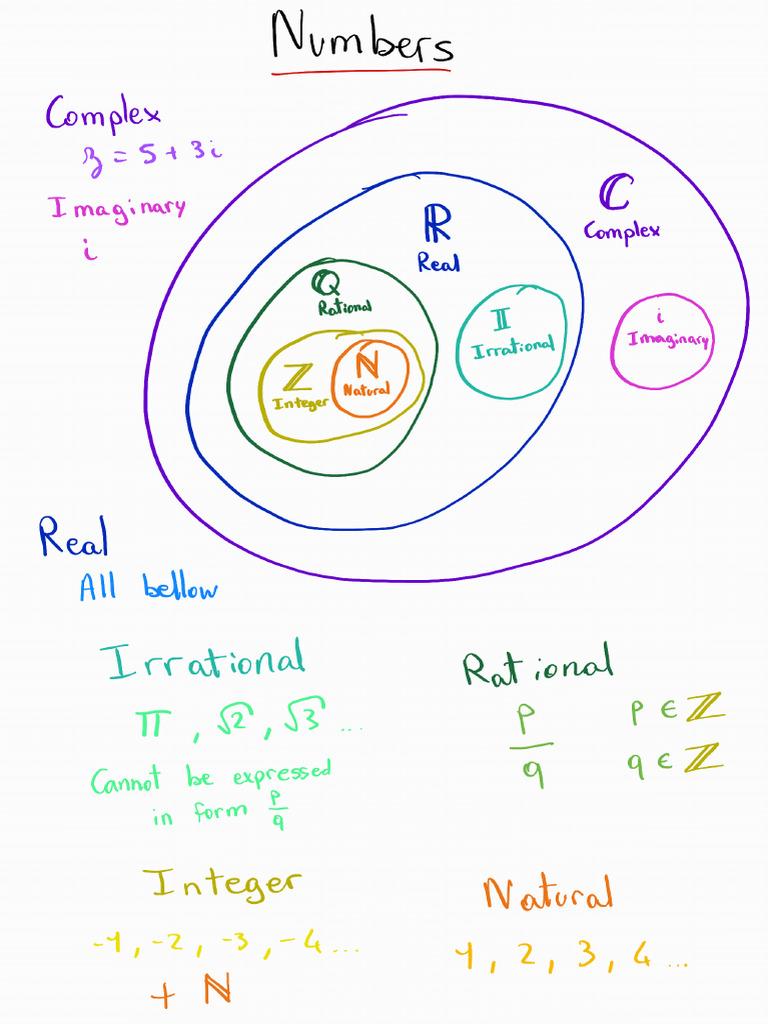 Numbers
Complex
z = 5 + 3i
Imaginary
i
ℂ
Complex
ℝ
Real
ℚ
Rational
ℤ
Integer
ℕ
Natural
𝕀
Irrational
i
Imaginary
Real
All bellow
Irrational
π, √2, √3 ...
Cannot be expressed
in form p/q
Rational
p/q
p ∈ ℤ
q ∈ ℤ
Integer
-1, -2, -3, -4 ...
+ ℕ
Natural
1, 2, 3, 4 ...